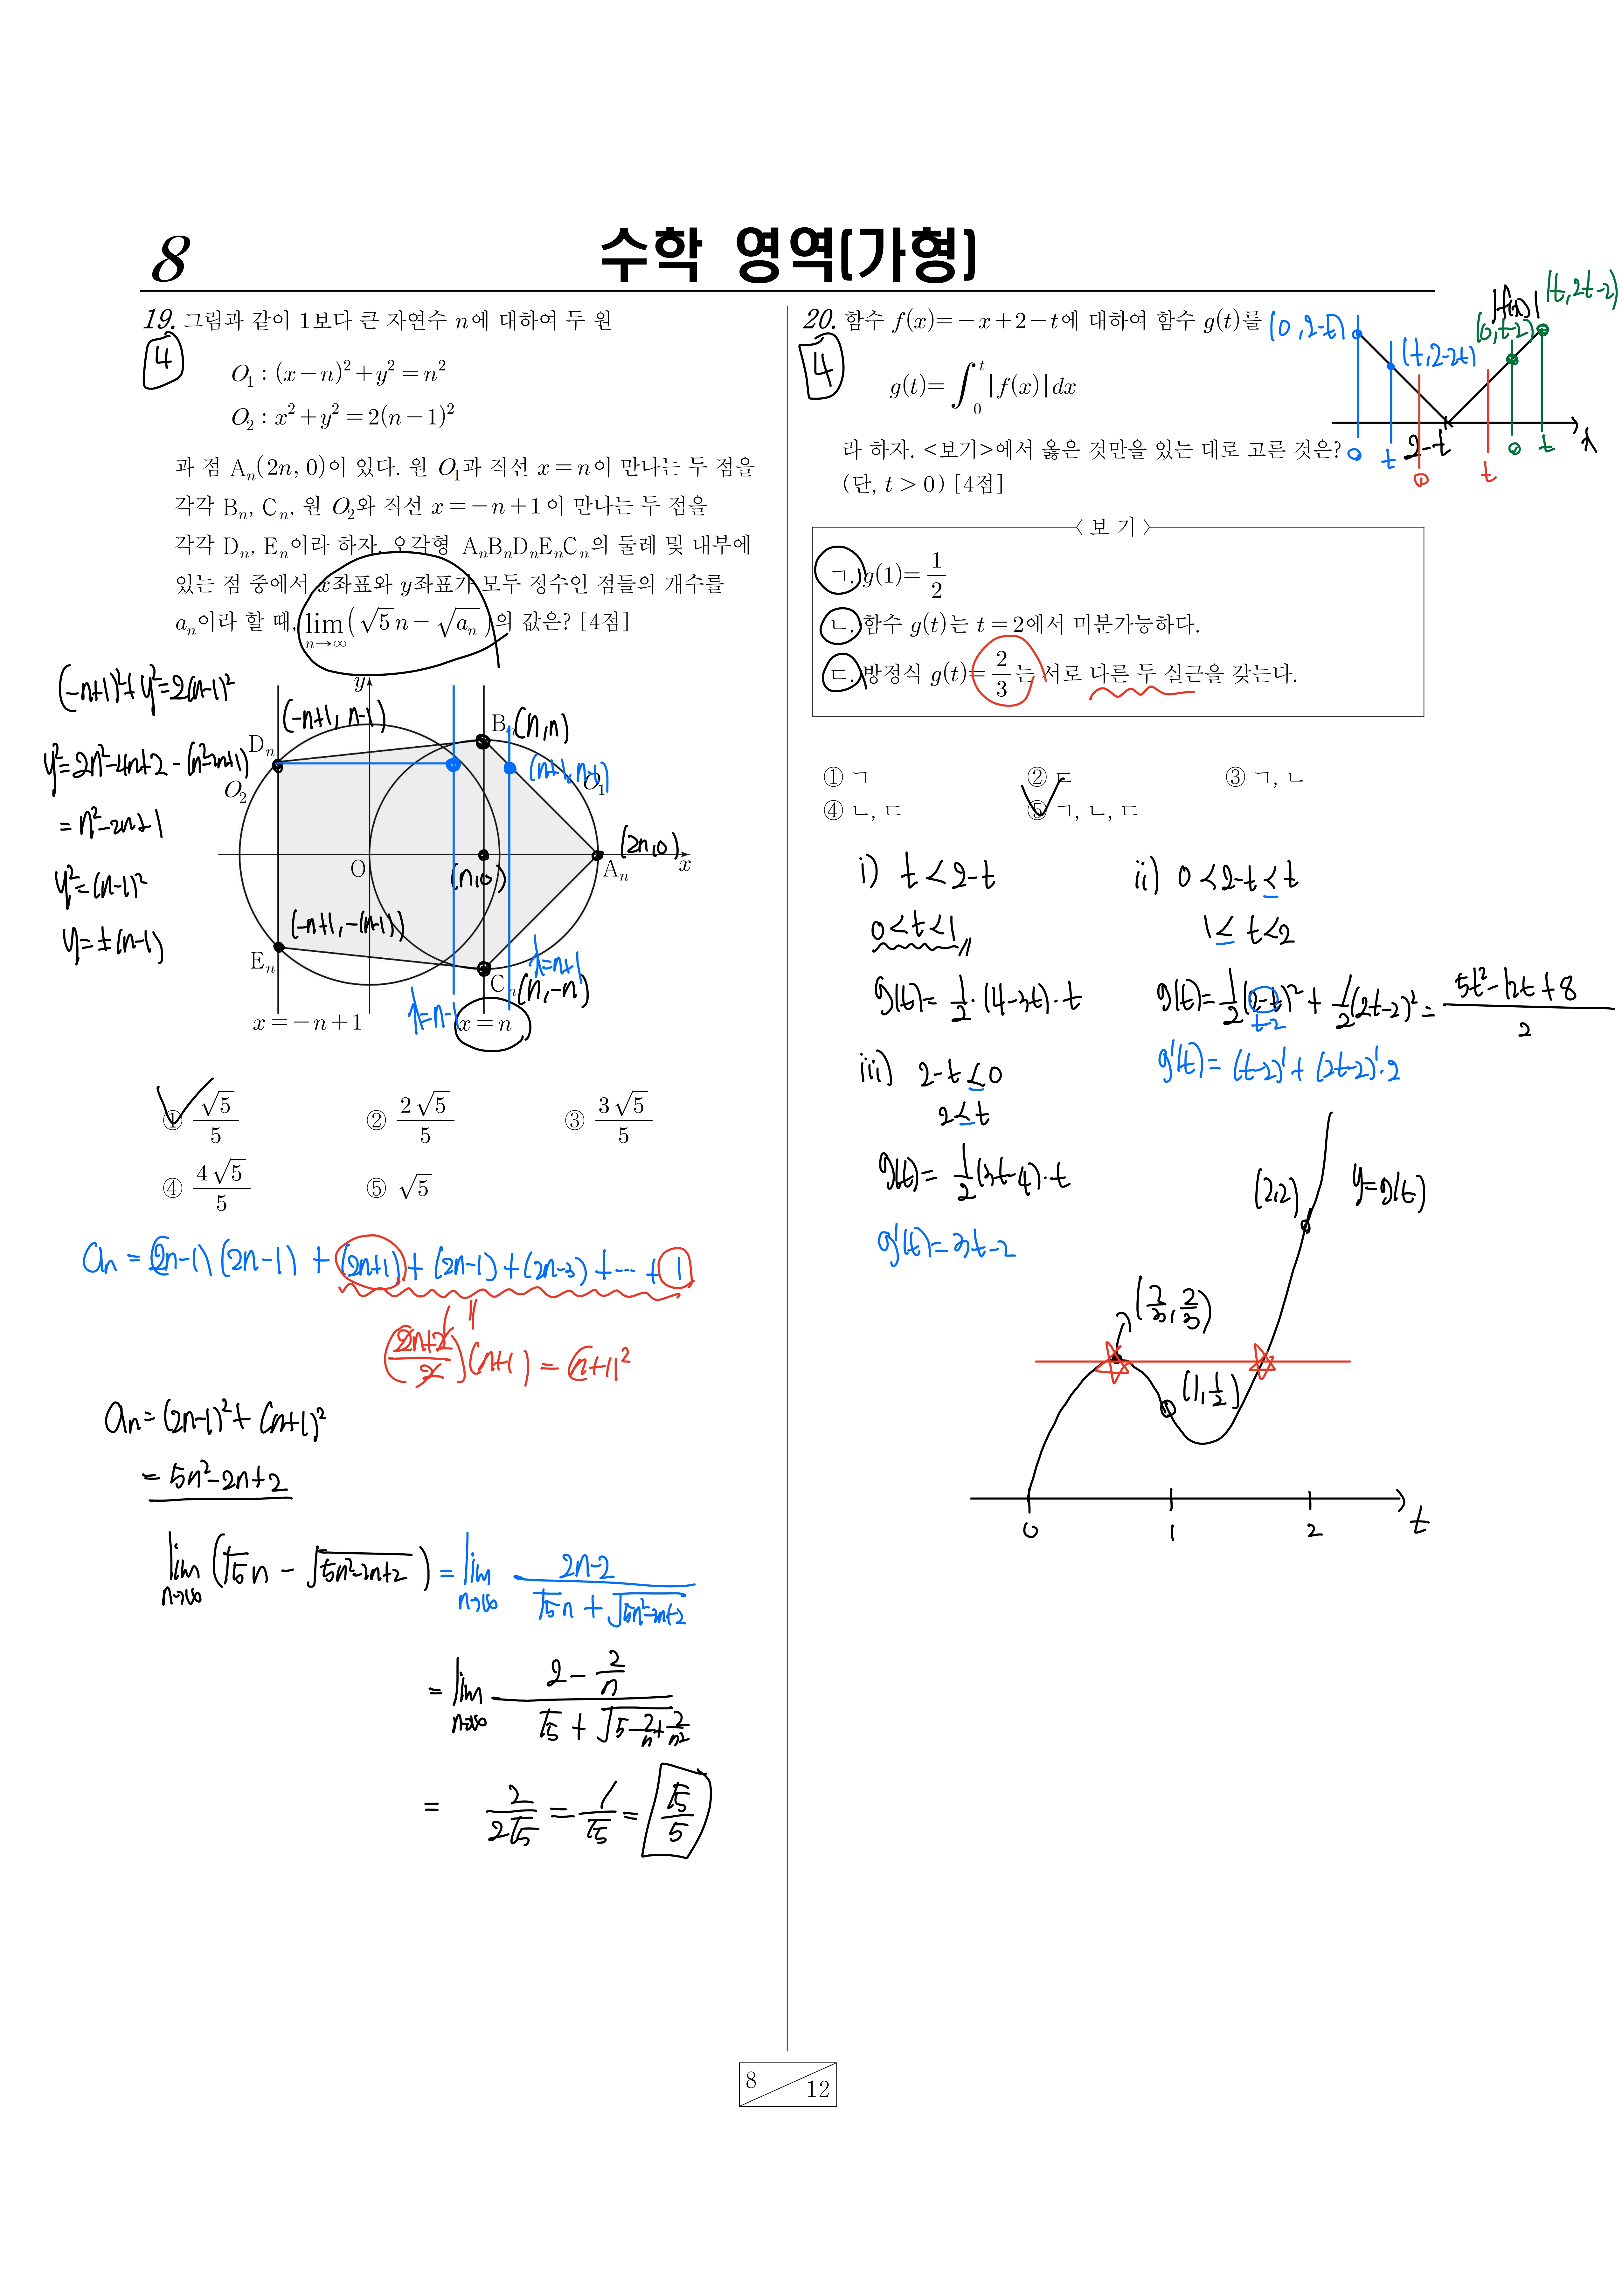 8
수학 영역(가형)
19. 그림과 같이 1보다 큰 자연수 n에 대하여 두 원
4
O₁ : (x−n)²+y²=n²
O₂ : x²+y²=2(n−1)²
과 점 Aₙ(2n, 0)이 있다. 원 O₁과 직선 x=n이 만나는 두 점을
각각 Bₙ, Cₙ, 원 O₂와 직선 x=−n+1이 만나는 두 점을
각각 Dₙ, Eₙ이라 하자. 오각형 AₙBₙDₙEₙCₙ의 둘레 및 내부에
있는 점 중에서 x좌표와 y좌표가 모두 정수인 점들의 개수를
aₙ이라 할 때, lim n→∞ (√5 n−√aₙ)의 값은? [4점]
(-n+1)²+y²=2(n-1)²
y²=2n²-4n+2-(n²-2n+1)
=n²-2n+1
y²=(n-1)²
y=±(n-1)
y
(-n+1, n-1)
Bₙ (n, n)
Dₙ
(n+1, n-1)
O₂
O₁
(2n, 0)
O
(n, 0)
Aₙ
x
(-n+1, -(n-1))
Eₙ
x=n+1
Cₙ (n, -n)
x=−n+1
x=n-1
x=n
① √5/5
② 2√5/5
③ 3√5/5
④ 4√5/5
⑤ √5
aₙ = (2n-1)(2n-1) + (2n+1)+(2n-1)+(2n-3)+…+1
((2n+2)/2)(n+1) = (n+1)²
aₙ=(2n-1)²+(n+1)²
=5n²-2n+2
lim n→∞ (√5n - √(5n²-2n+2)) = lim n→∞ (2n-2)/(√5n+√(5n²-2n+2))
= lim n→∞ (2-2/n)/(√5+√(5-2/n+2/n²))
= 2/(2√5) = 1/√5 = √5/5
20. 함수 f(x)=−x+2−t에 대하여 함수 g(t)를
4
g(t)=∫₀ᵗ |f(x)|dx
라 하자. <보기>에서 옳은 것만을 있는 대로 고른 것은?
(단, t > 0) [4점]
|f(x)|
(t, 2t-2)
(0, 2-t)
(0, t-2)
(t, 2-2t)
0 t 2-t 0 t 0 t x
< 보 기 >
ㄱ. g(1)=1/2
ㄴ. 함수 g(t)는 t=2에서 미분가능하다.
ㄷ. 방정식 g(t)=2/3는 서로 다른 두 실근을 갖는다.
① ㄱ
② ㄷ
③ ㄱ, ㄴ
④ ㄴ, ㄷ
⑤ ㄱ, ㄴ, ㄷ
i) t<2-t
0<t<1
g(t)=1/2·(4-3t)·t
ii) 0<2-t≤t
1≤t<2
g(t)=1/2(2-t)²+1/2(2t-2)²=(5t²-12t+8)/2
t-2
g'(t)=(t-2)¹+(2t-2)¹·2
iii) 2-t≤0
2≤t
g(t)=1/2(3t-4)·t
g'(t)=3t-2
(2,2)
y=g(t)
(2/3, 2/3)
(1, 1/2)
0 1 2 t
8 12